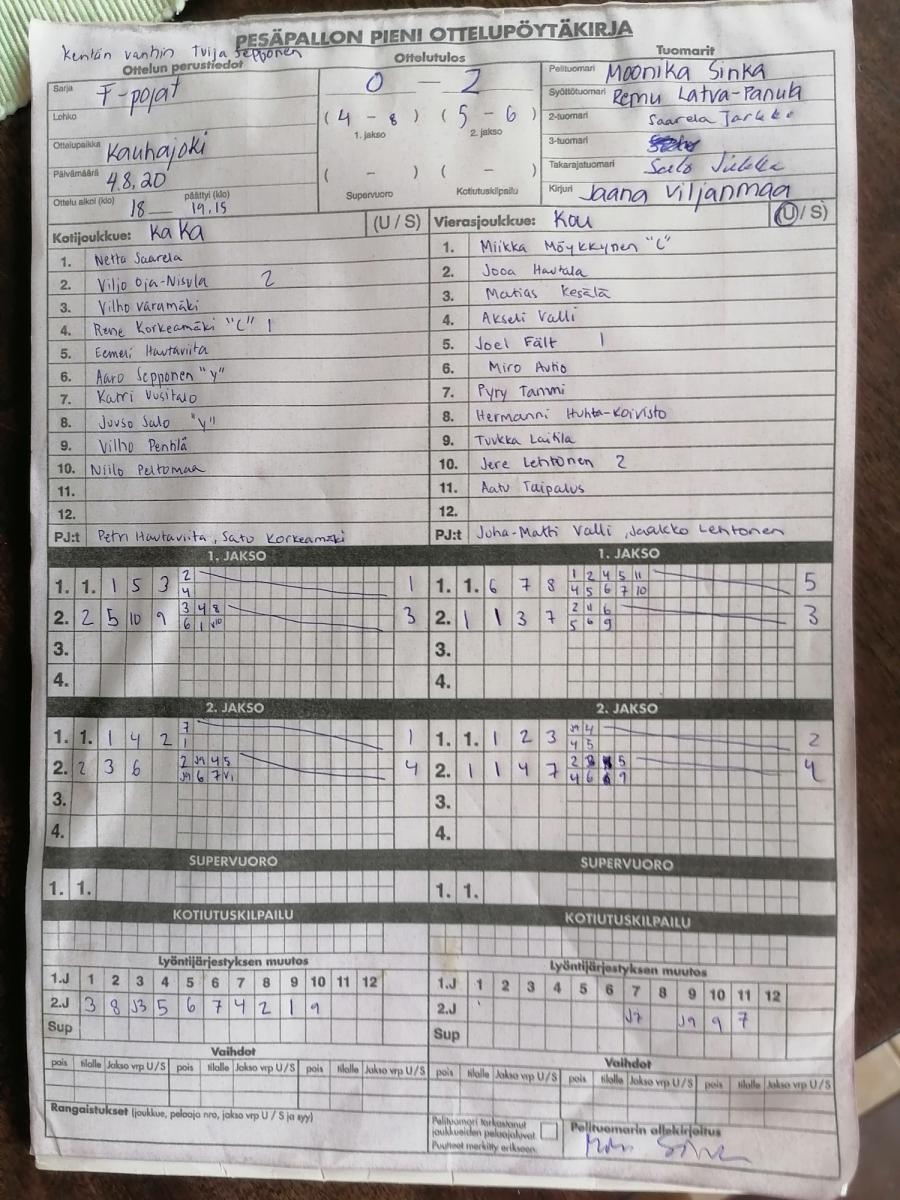 PESÄPALLON PIENI OTTELUPÖYTÄKIRJA
Kentän vanhin Tuija Sepponen
Ottelun perustiedot
Sarja F-pojat
Lohko
Ottelupaikka Kauhajoki
Päivämäärä 4.8.20
Ottelu alkoi (klo) 18 päättyi (klo) 19.15
Ottelutulos
0 - 2
(4 - 8) (5 - 6)
1. jakso 2. jakso
( - ) ( - )
Supervuoro Kotiutuskilpailu
Tuomarit
Pelituomari Moonika Sinka
Syöttötuomari Remu Latva-Panula
2-tuomari Saarela Jarkko
3-tuomari
Takarajatuomari Salo Jukka
Kirjuri Jaana Viljanmaa
Kotijoukkue: KaKa (U / S)
1. Netta Saarela
2. Viljo Oja-Nisula 2
3. Vilho Väramäki
4. Rene Korkeamäki "C" 1
5. Eemeli Hautaviita
6. Aaro Sepponen "y"
7. Katri Uusitalo
8. Juuso Salo "y"
9. Vilho Penhlä
10. Niilo Peltomaa
11.
12.
PJ:t Petri Hautaviita, Satu Korkeamäki
Vierasjoukkue: Kou (U / S)
1. Miikka Möykkynen "C"
2. Jooa Hautala
3. Matias Kesälä
4. Akseli Valli
5. Joel Fält 1
6. Miro Autio
7. Pyry Tammi
8. Hermanni Huhta-Koivisto
9. Tuukka Laitila
10. Jere Lehtonen 2
11. Aatu Taipalus
12.
PJ:t Juha-Matti Valli, Jaakko Lehtonen
1. JAKSO
1. 1. 1 5 3 2 1
4
2. 2 5 10 9 3 4 8 3
6 1 V10
3.
4.
1. JAKSO
1. 1. 6 7 8 1 2 4 5 11 5
4 5 6 7 10
2. 1 1 3 7 2 11 6 3
5 6 9
3.
4.
2. JAKSO
1. 1. 1 4 2 7 1
1
2. 2 3 6 2 J9 4 5 4
J9 6 7 V1
3.
4.
2. JAKSO
1. 1. 1 2 3 J9 4 2
4 5
2. 1 1 4 7 2 5 4
4 6 9
3.
4.
SUPERVUORO
1. 1.
SUPERVUORO
1. 1.
KOTIUTUSKILPAILU
KOTIUTUSKILPAILU
Lyöntijärjestyksen muutos
1.J 1 2 3 4 5 6 7 8 9 10 11 12
2.J 3 8 J3 5 6 7 4 2 1 9
Sup
Lyöntijärjestyksen muutos
1.J 1 2 3 4 5 6 7 8 9 10 11 12
2.J J7 J9 9 7
Sup
Vaihdot
pois tilalle Jakso vrp U/S pois tilalle Jakso vrp U/S pois tilalle Jakso vrp U/S
Vaihdot
pois tilalle Jakso vrp U/S pois tilalle Jakso vrp U/S pois tilalle Jakso vrp U/S
Rangaistukset (joukkue, pelaaja nro, jakso vrp U / S ja syy)
Pelituomari tarkastanut
joukkueiden pelaajaluvat
Puutteet merkitty erikseen.
Pelituomarin allekirjoitus